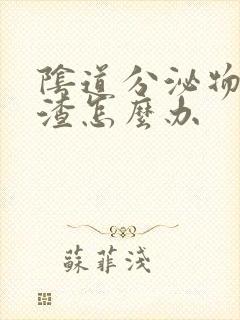 陰道分泌物
渣怎麼办
蘇菲淺